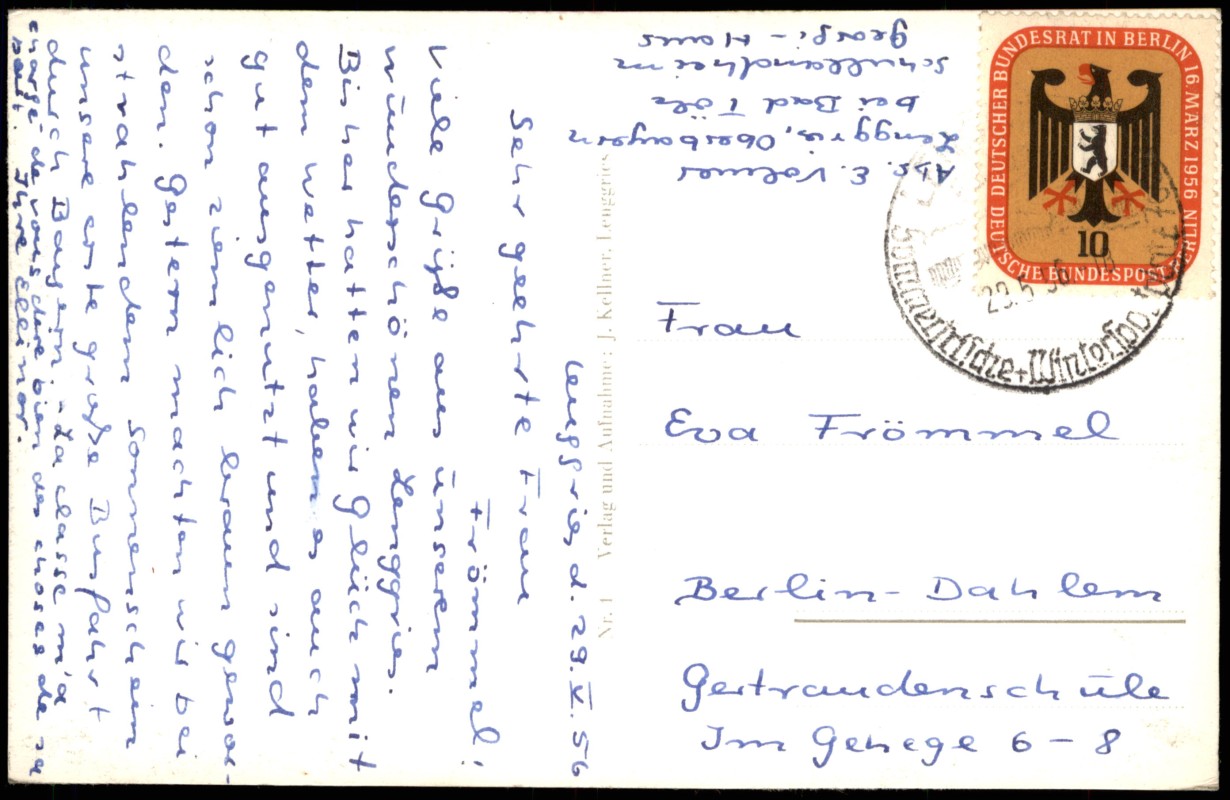 Lenggries d. 29. V. 56
Sehr geehrte Frau
Frömmel!
Viele Grüße aus unserem
wunderschönen Lenggries.
Bisher hatten wir Glück mit
dem Wetter, haben es auch
gut ausgenutzt und sind
schon ziemlich braun gewor-
den. Gestern machten wir bei
strahlendem Sonnenschein
unsere erste große Busfahrt
durch Bayern. - La classe m'a
chargé de vous dire bien des choses de sa
part. Ihre Ellinor.
Abs. E. Volmer
Lenggries, Oberbayern
bei Bad Tölz
Schullandheim
Nr. 1 Verlag und Aufnahme: J. Kellner, Lenggries
DEUTSCHER BUNDESRAT IN BERLIN 16. MÄRZ 1956
DEUTSCHE BUNDESPOST BERLIN
10
29.5.56
Sommerfrische + Wintersport
Frau
Eva Frömmel
Berlin-Dahlem
Gertraudenschule
Im Gehege 6-8